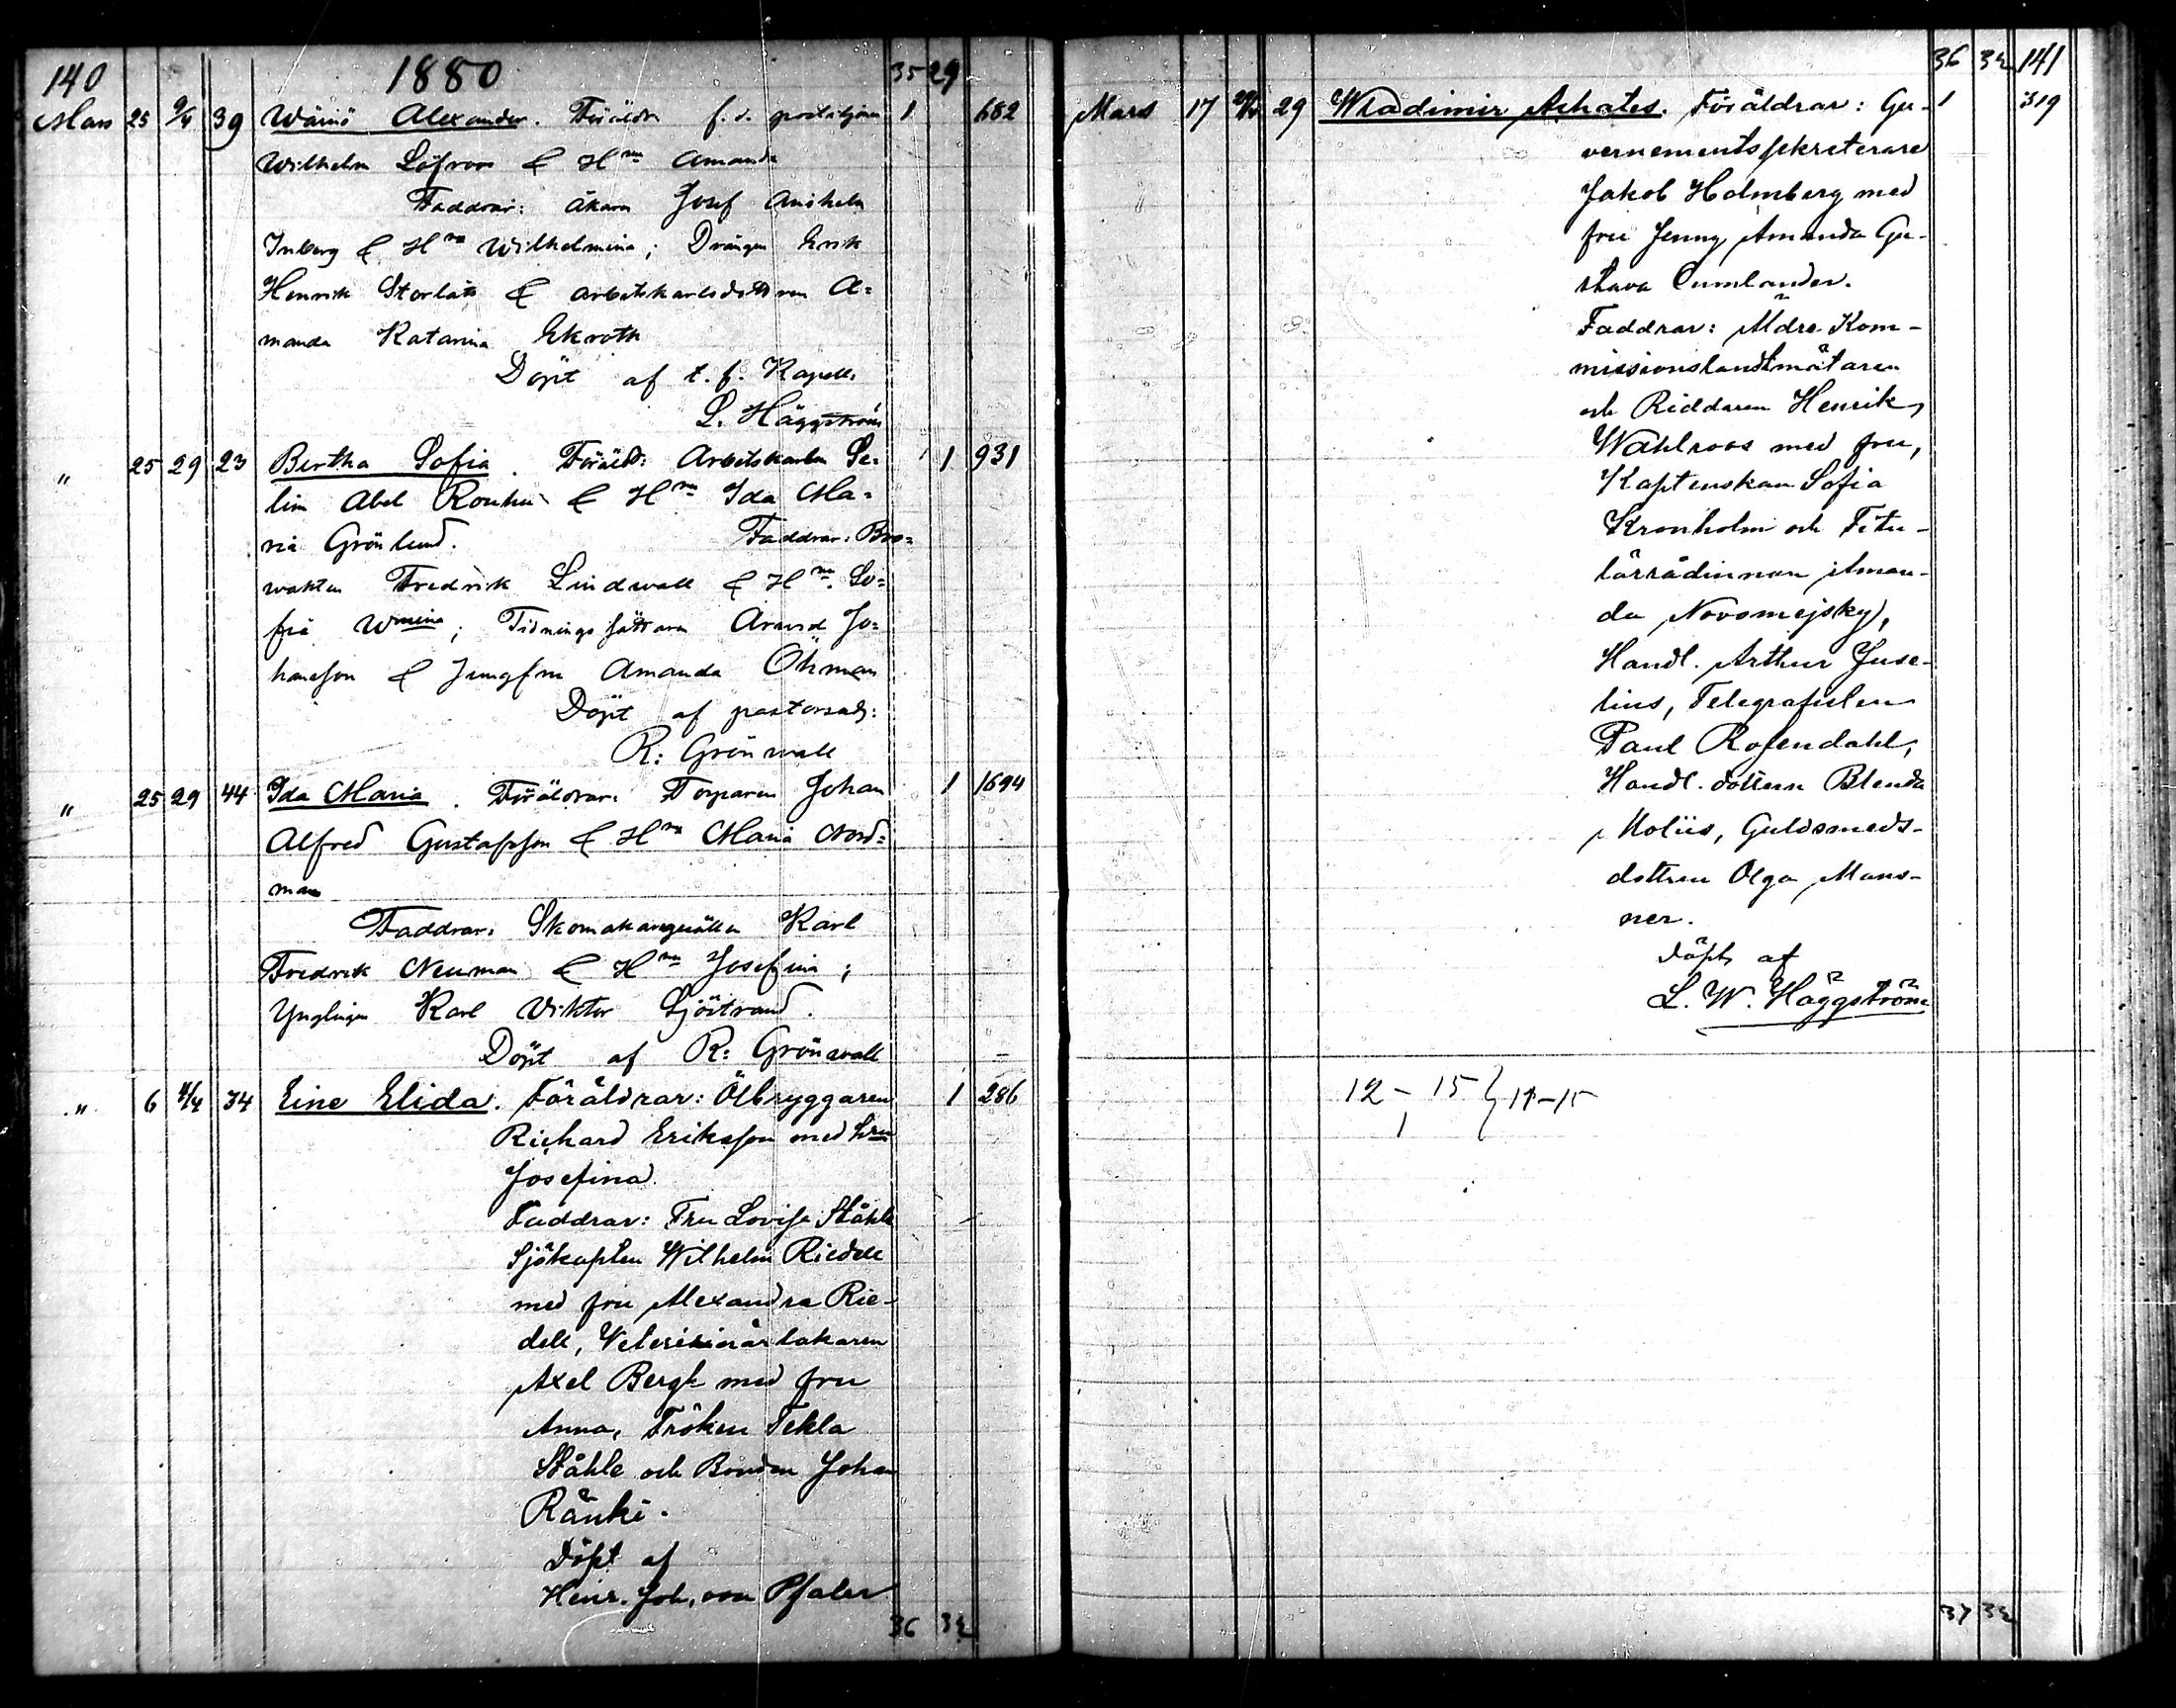 140 1880 35 29
Mars 25 9/4 39 Wäinö Alexander. Föräldr f. d. postiljon 1 682
Wilhelm Löfroos & Hru Amanda
Faddrar: åkarn Josef Anshelm
Inberg & Hru Wilhelmina; Drängen Erik
Henrik Storlåts & arbetskarlsdottren A=
manda Katarina Ekroth
Döpt af t. f. Kapell:
L. Häggström
" 25 29 23 Bertha Sofia. Föräld: Arbetskarlen Se= 1 931
lim Abel Rouhu & Hru Ida Ma=
ria Grönlund. Faddrar: Bro=
wakten Fredrik Lindwall & Hru So=
fia Wmina; Tidningssättaren Arvid Jo=
hansson & Jungfrun Amanda Öhman
Döpt af pastorsadj:
R: Grönwall
" 25 29 44 Ida Maria. Föräldrar: Torparen Johan 1 1694
Alfred Gustafsson & Hru Maria Nord=
man
Faddrar: Skomakaregesällen Karl
Fredrik Neuman & Hru Josefina;
Ynglingen Karl Viktor Sjöstrand.
Döpt af R: Grönwall
" 6 4/4 34 Eine Elida. Föräldrar: Ölbryggaren 1 286
Richard Eriksson med hru
Josefina.
Faddrar: Fru Lovisa Ståhle
Sjökapten Wilhelm Riedell
med fru Alexandra Rie-
dell, Veterinärläkaren
Axel Bergh med fru
Anna, Fröken Tekla
Ståhle och Bonden Johan
Ränki.
Döpt af
Heinr. Joh. von Pfaler
36 32
36 32 141
Mars 17 29 Wladimir Achates. Föräldrar: Gu- 1 319
vernementssekreterare
Jakob Holmberg med
fru Jenny Amanda Gu-
stava Cumlander.
Faddrar: Äldre Kom-
missionslandtmätaren
och Riddaren Henrik
Wahlroos med fru,
Kaptenskan Sofia
Kronholm och Titu-
lärrådinnan Aman-
da Novomejsky,
Handl. Arthur Juse-
lius, Telegrafisten
Paul Rosendahl,
Handl. dottren Blenda
Moliis, Guldsmeds-
dottren Olga Mans-
ner.
Döpt af
L. W. Häggström
12 - 15 } 11-15
1
37 32